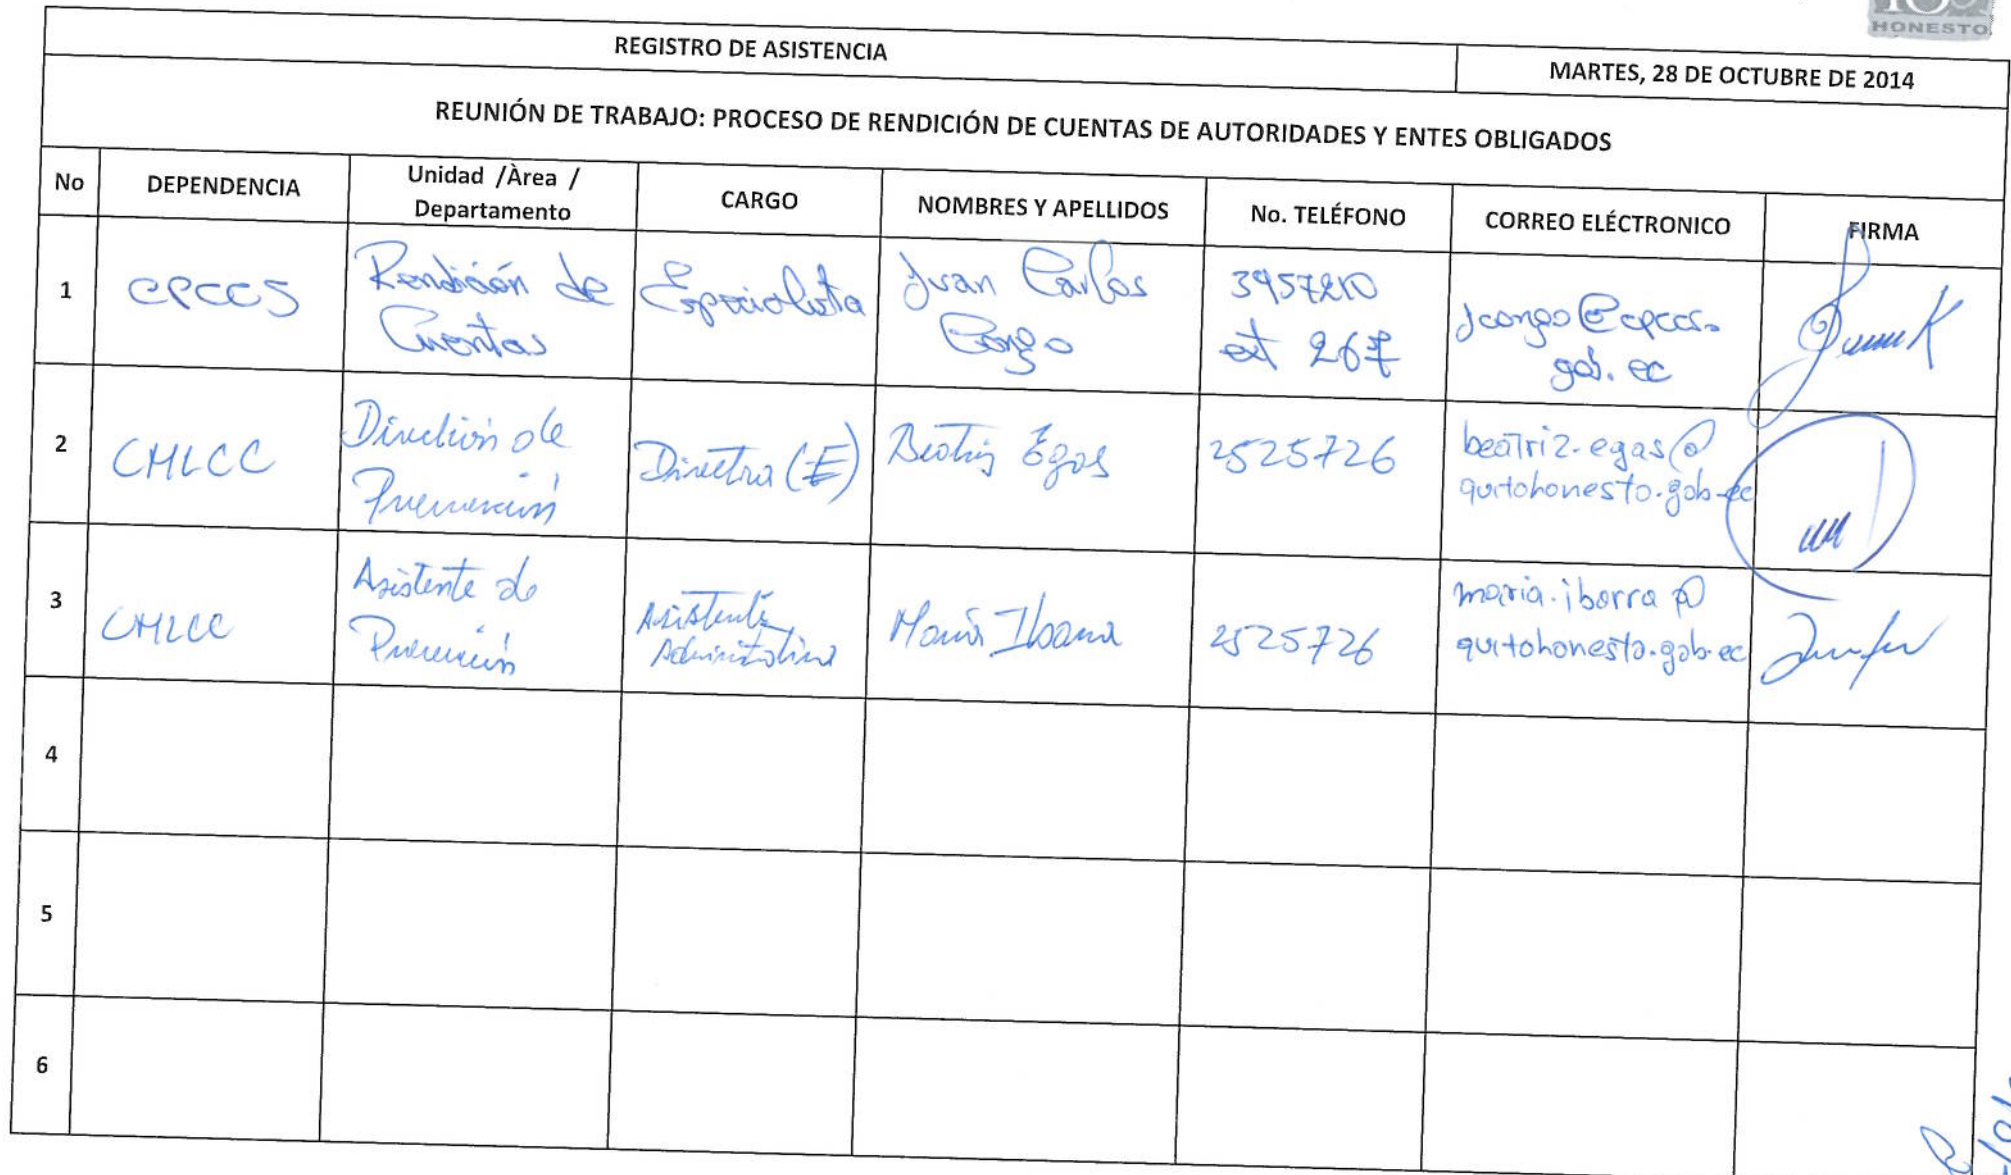 HONESTO
REGISTRO DE ASISTENCIA
MARTES, 28 DE OCTUBRE DE 2014
REUNIÓN DE TRABAJO: PROCESO DE RENDICIÓN DE CUENTAS DE AUTORIDADES Y ENTES OBLIGADOS
No
DEPENDENCIA
Unidad /Àrea /
Departamento
CARGO
NOMBRES Y APELLIDOS
No. TELÉFONO
CORREO ELÉCTRONICO
FIRMA
1
CPCCS
Rendición de
Cuentas
Especialista
Juan Carlos
Congo
3957210
ext 267
jcongo@cpccs.
gob.ec
2
CMLCC
Dirección de
Prevención
Directora (E)
Beatriz Egas
2525726
beatriz.egas@
quitohonesto.gob.ec
3
CMLCC
Asistente de
Prevención
Asistente
Administrativa
María Ibarra
2525726
maria.ibarra@
quitohonesto.gob.ec
4
5
6